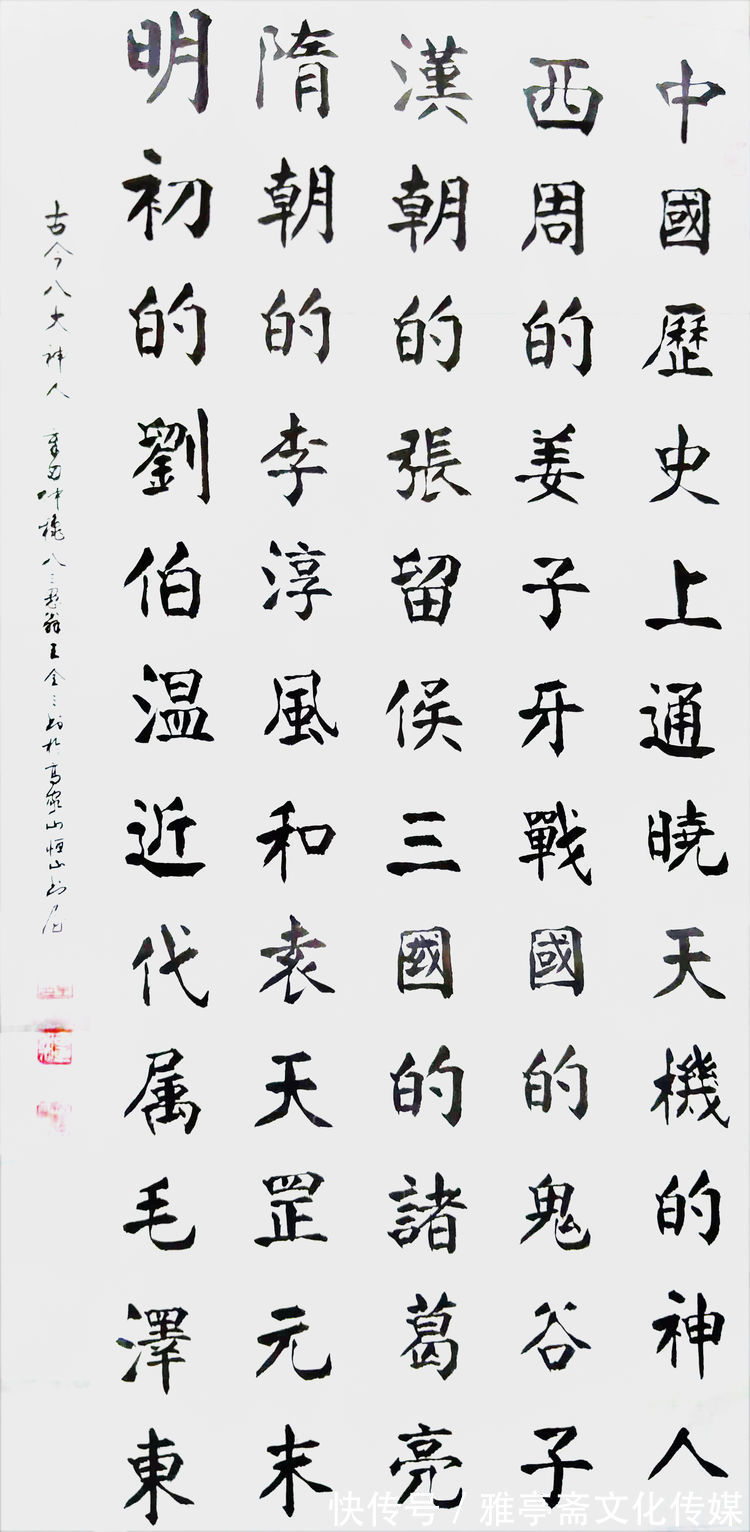 中國歷史上通曉天機的神人
西周的姜子牙戰國的鬼谷子
漢朝的張留侯三國的諸葛亮
隋朝的李淳風和袁天罡元末
明初的劉伯溫近代属毛澤東
古今八大神人
八三愚翁王全三书於高家山恒山书屋
快传号/雅亭斋文化传媒